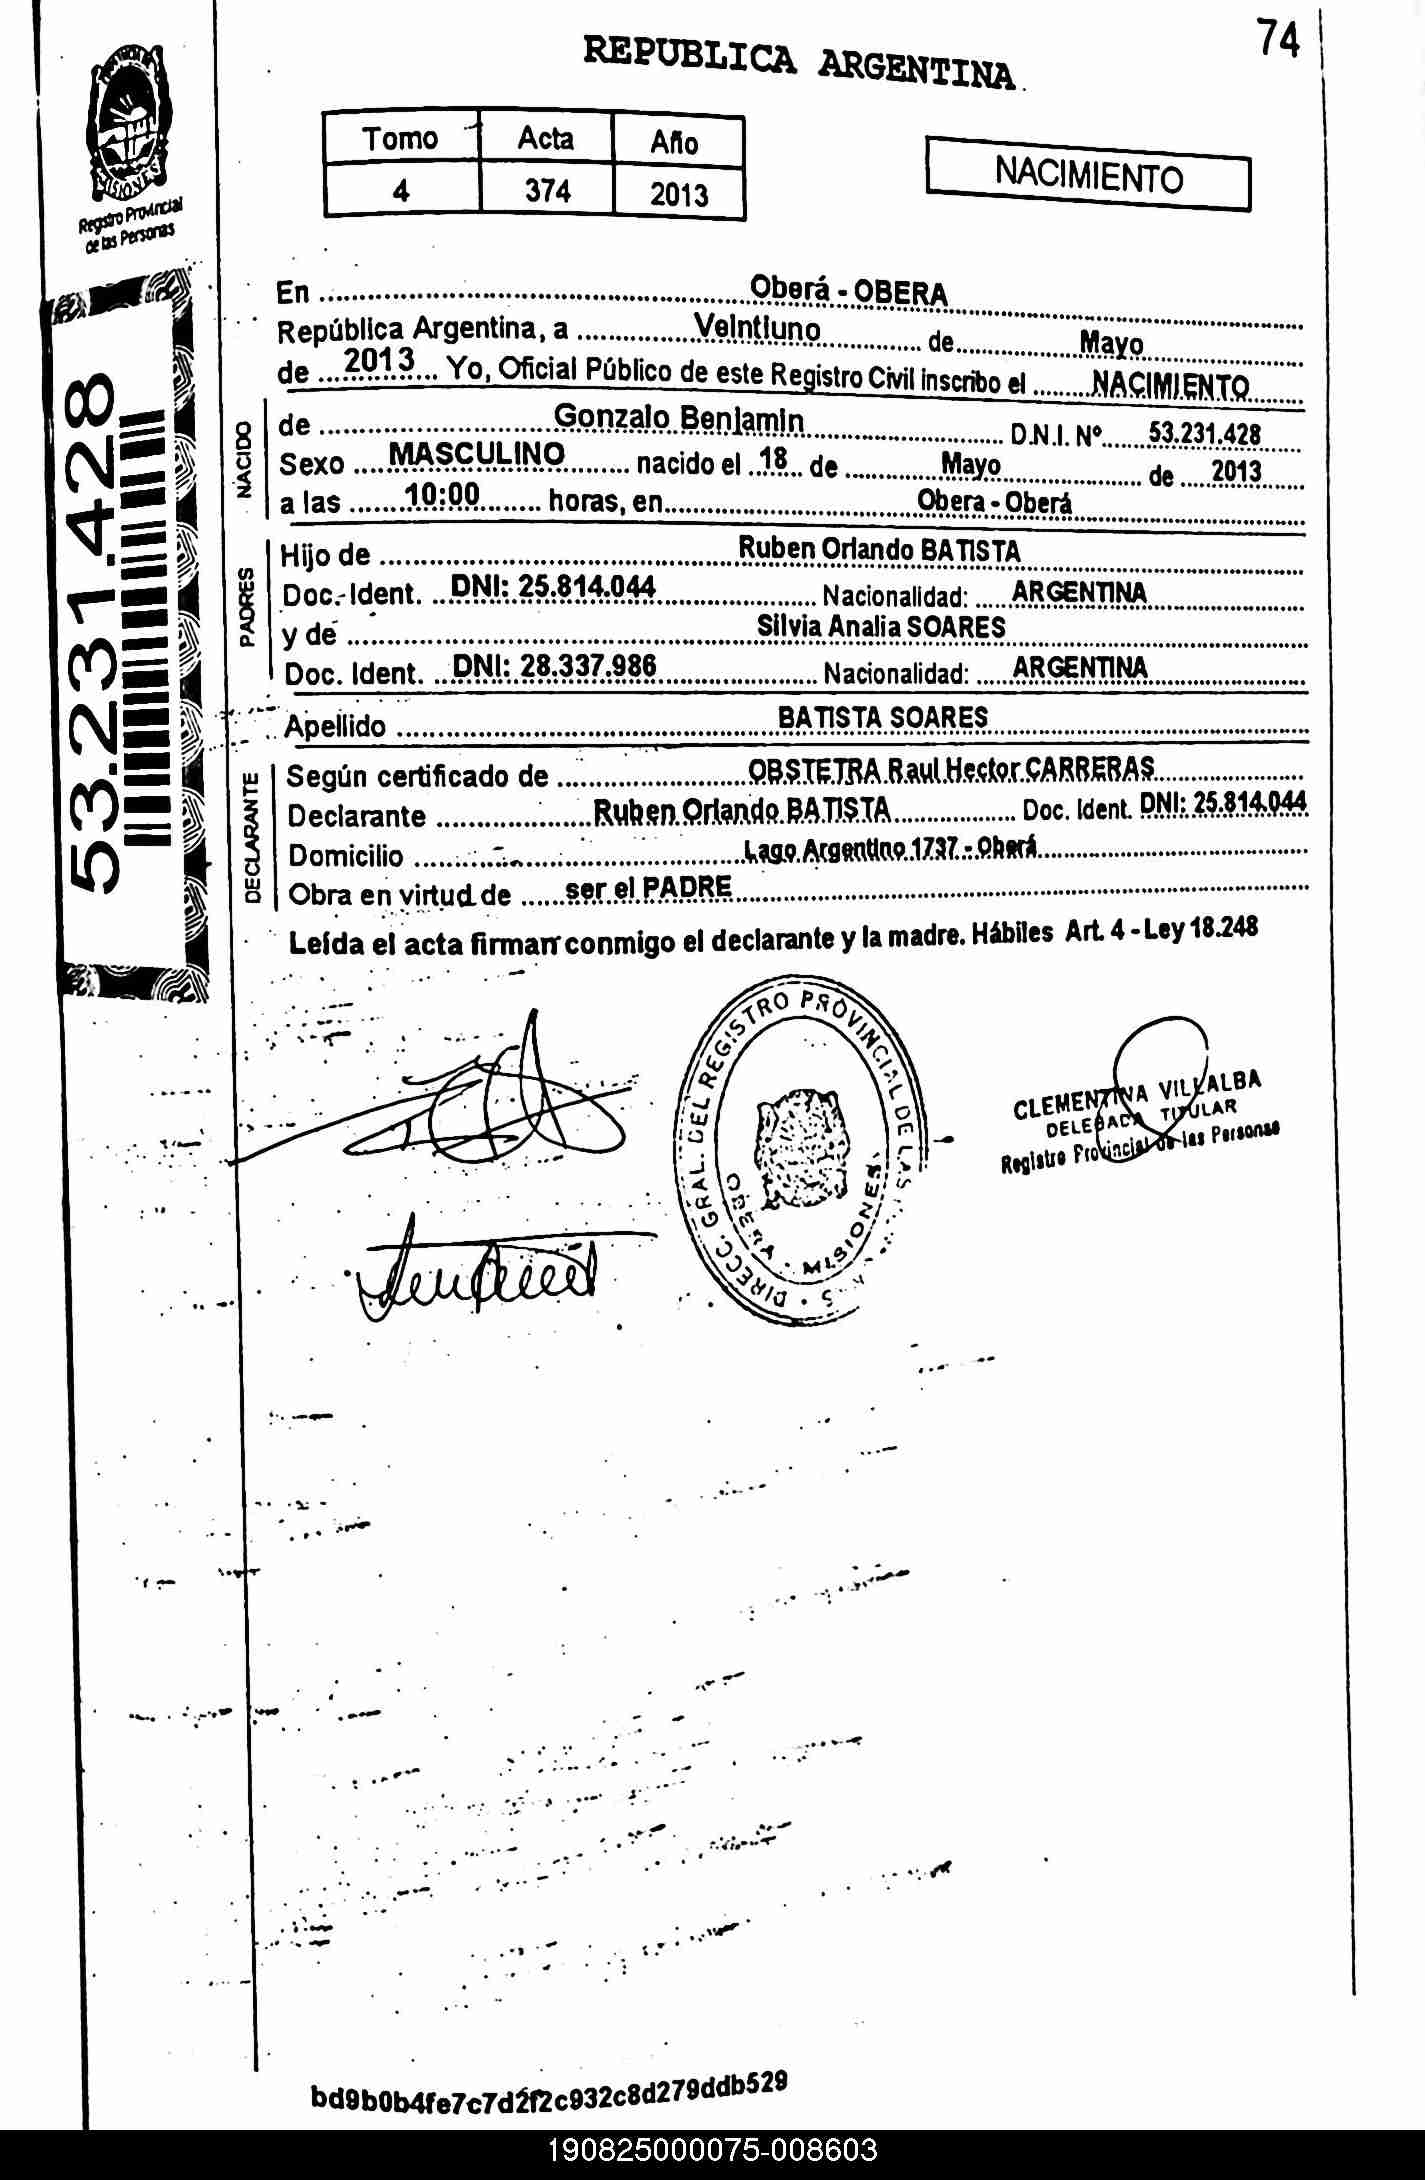 74
REPUBLICA ARGENTINA
Tomo Acta Año
4 374 2013
NACIMIENTO
MISIONES
Registro Provincial
de las Personas
53.231.428
En Oberá - OBERA
República Argentina, a Veintiuno de Mayo
de 2013 Yo, Oficial Público de este Registro Civil inscribo el NACIMIENTO
NACIDO
de Gonzalo Benjamin D.N.I. Nº 53.231.428
Sexo MASCULINO nacido el 18 de Mayo de 2013
a las 10:00 horas, en Obera - Oberá
PADRES
Hijo de Ruben Orlando BATISTA
Doc. Ident. DNI: 25.814.044 Nacionalidad: ARGENTINA
y de Silvia Analia SOARES
Doc. Ident. DNI: 28.337.986 Nacionalidad: ARGENTINA
Apellido BATISTA SOARES
DECLARANTE
Según certificado de OBSTETRA Raul Hector CARRERAS
Declarante Ruben Orlando BATISTA Doc. Ident. DNI: 25.814.044
Domicilio Lago Argentino 1737 - Oberá
Obra en virtud de ser el PADRE
Leída el acta firman conmigo el declarante y la madre. Hábiles Art. 4 - Ley 18.248
DIRECC. GRAL. DEL REGISTRO PROVINCIAL DE LAS
OBERA - MISIONES
CLEMENTINA VILLALBA
DELEGADA TITULAR
Registro Provincial de las Personas
bd9b0b4fe7c7d2f2c932c8d279ddb529
190825000075-008603